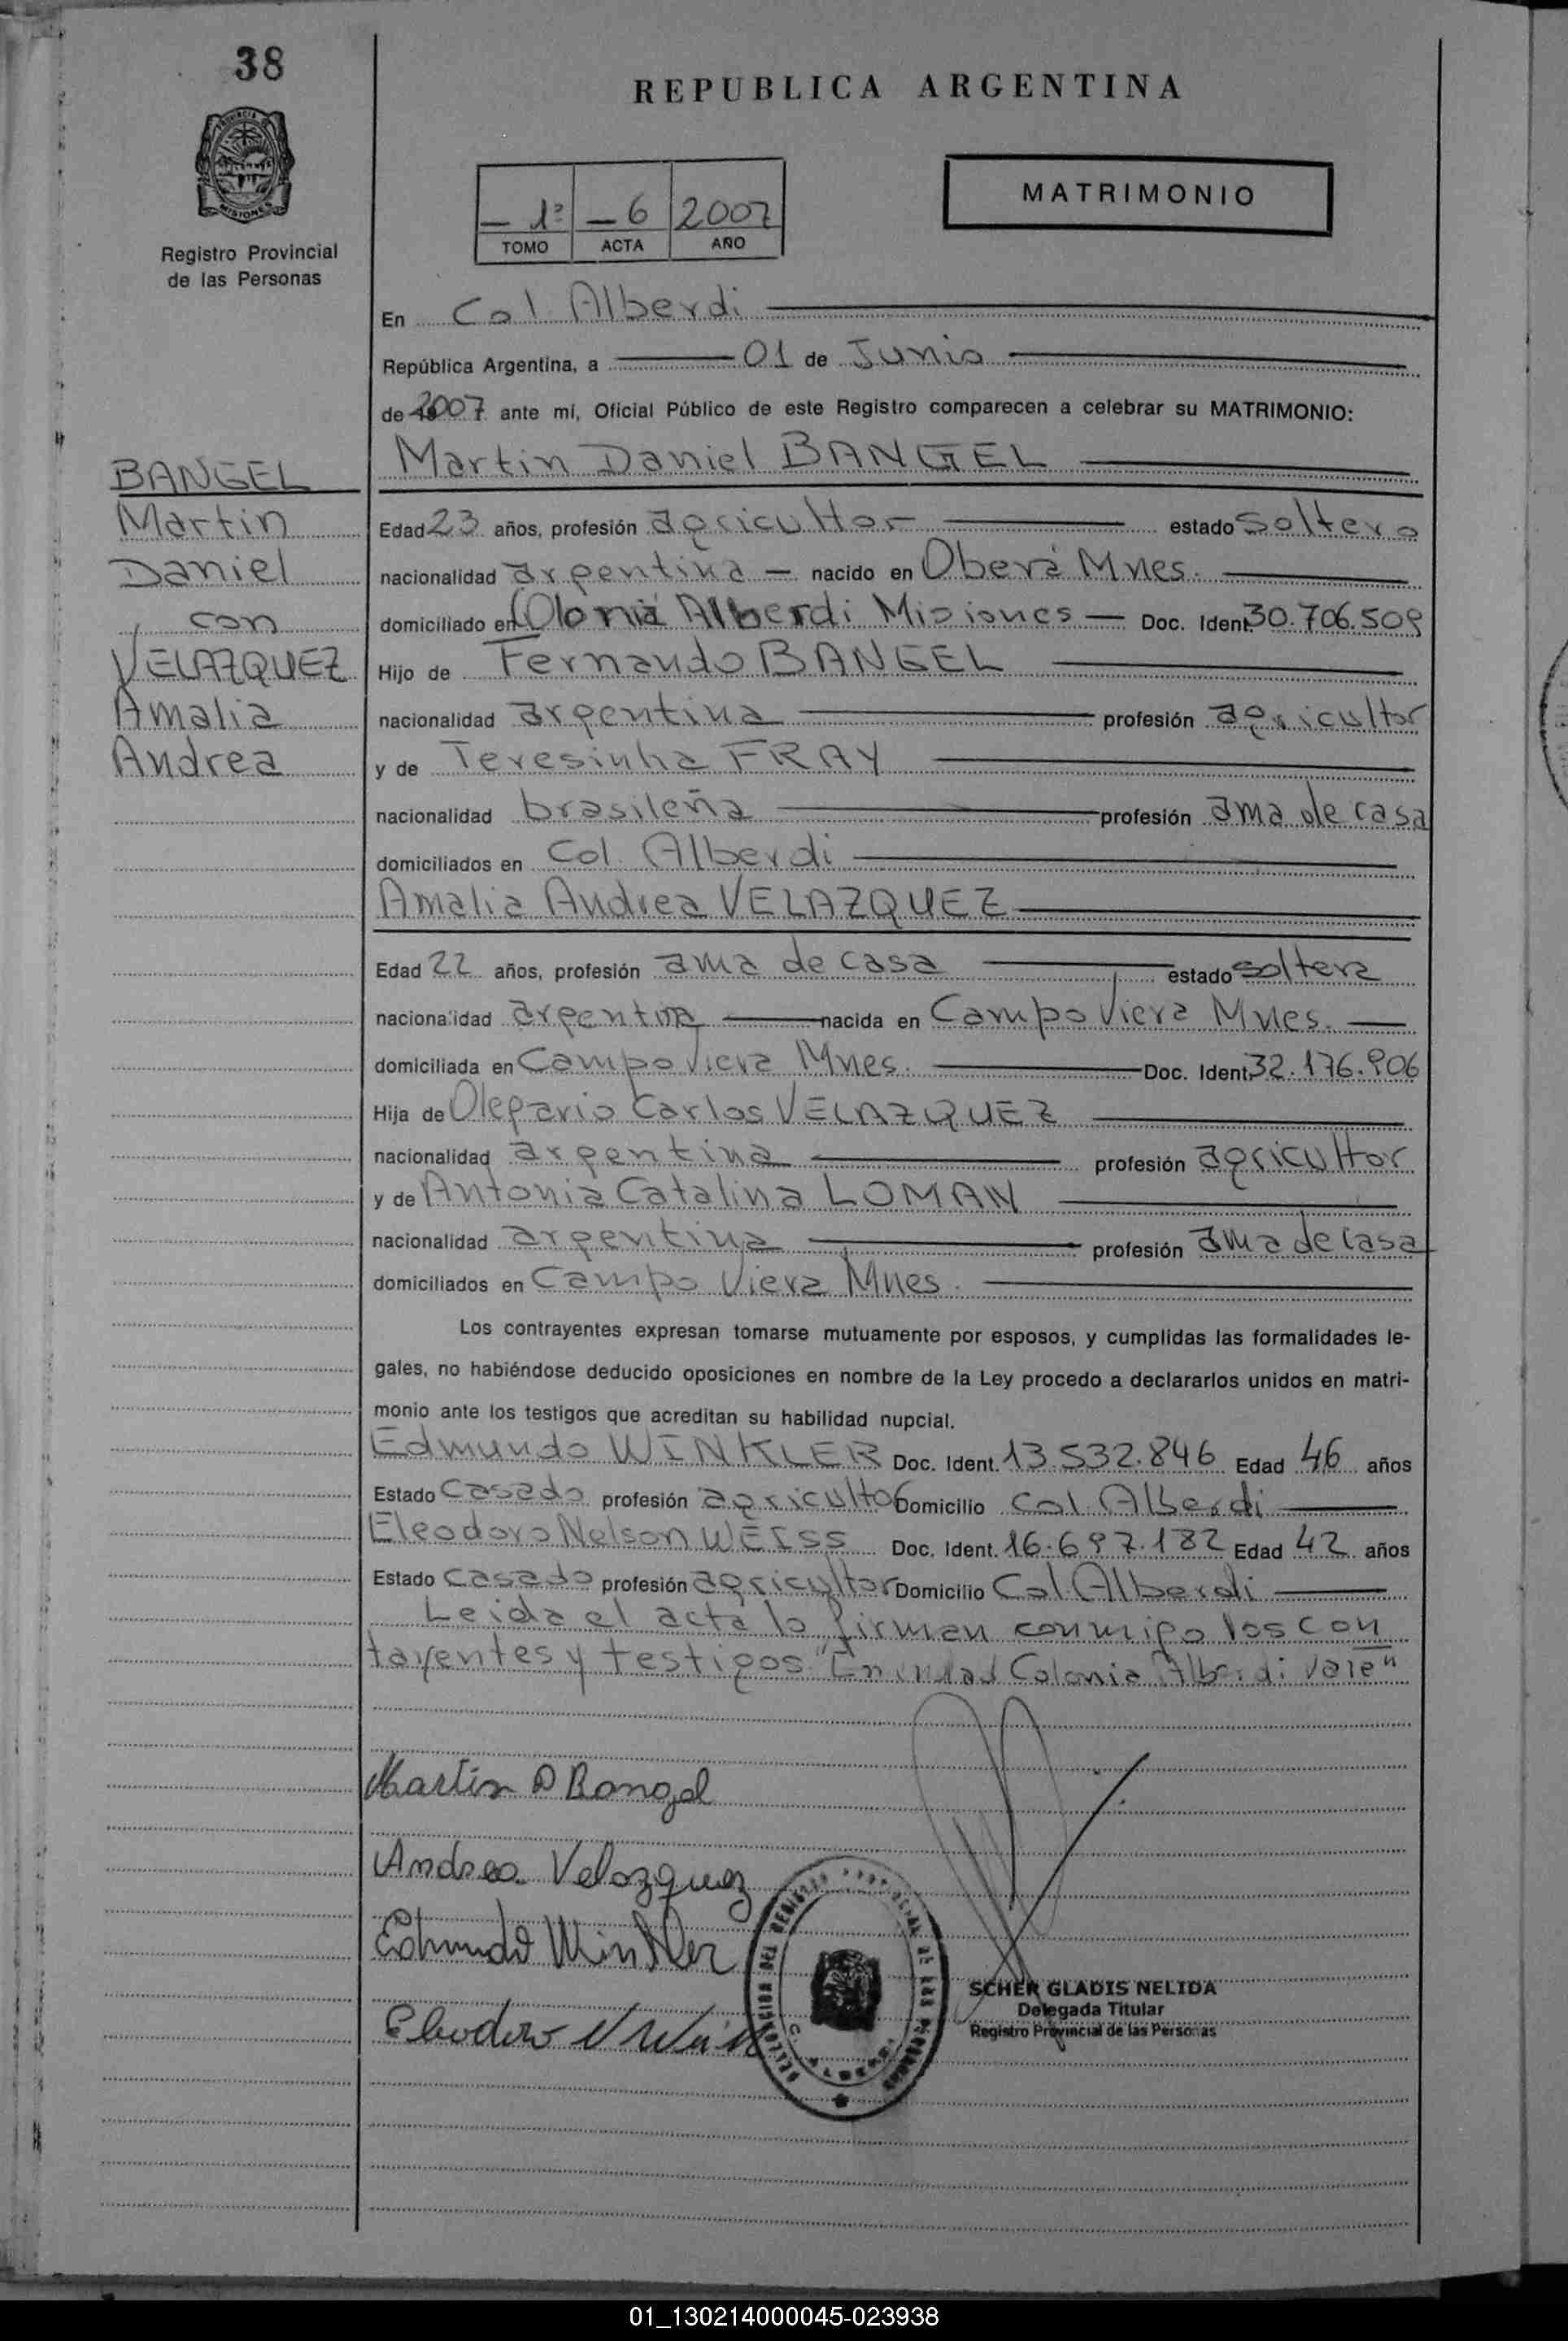 38
REPUBLICA ARGENTINA
PROVINCIA DE
MISIONES
Registro Provincial
de las Personas
— 1º — 6 2007
TOMO ACTA AÑO
MATRIMONIO
En Col. Alberdi
República Argentina, a 01 de Junio
de 2007 ante mí, Oficial Público de este Registro comparecen a celebrar su MATRIMONIO:
Martin Daniel BANGEL
BANGEL
Martin
Daniel
con
VELAZQUEZ
Amalia
Andrea
Edad 23 años, profesión agricultor estado soltero
nacionalidad argentina — nacido en Oberá Mnes.
domiciliado en Colonia Alberdi Misiones — Doc. Ident. 30.706.509
Hijo de Fernando BANGEL
nacionalidad argentina profesión agricultor
y de Teresinha FRAY
nacionalidad brasileña profesión ama de casa
domiciliados en Col. Alberdi
Amalia Andrea VELAZQUEZ
Edad 22 años, profesión ama de casa estado soltera
nacionalidad argentina nacida en Campo Viera Mnes. —
domiciliada en Campo Viera Mnes. Doc. Ident. 32.176.906
Hija de Olegario Carlos VELAZQUEZ
nacionalidad argentina profesión agricultor
y de Antonia Catalina LOMAN
nacionalidad argentina profesión ama de casa
domiciliados en Campo Viera Mnes.
Los contrayentes expresan tomarse mutuamente por esposos, y cumplidas las formalidades le-
gales, no habiéndose deducido oposiciones en nombre de la Ley procedo a declararlos unidos en matri-
monio ante los testigos que acreditan su habilidad nupcial.
Edmundo WINKLER Doc. Ident. 13.532.846 Edad 46 años
Estado casado profesión agricultor Domicilio Col. Alberdi
Eleodoro Nelson WEISS Doc. Ident. 16.697.182 Edad 42 años
Estado casado profesión agricultor Domicilio Col. Alberdi
Leida el acta lo firman conmigo los con
tayentes y testigos "Enmendad Colonia Alberdi Vale"
Martin D Bangel
Andrea Velazquez
Edmundo Winkler
Eleodoro N Weiss
DELEGACION DEL REGISTRO PROVINCIAL DE LAS PERSONAS
SCHER GLADIS NELIDA
Delegada Titular
Registro Provincial de las Personas
01_130214000045-023938